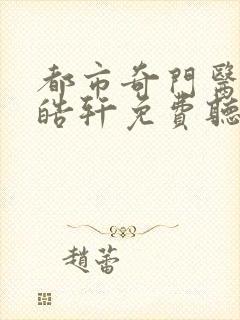 都市奇門醫
皓轩免費聽
趙蕾